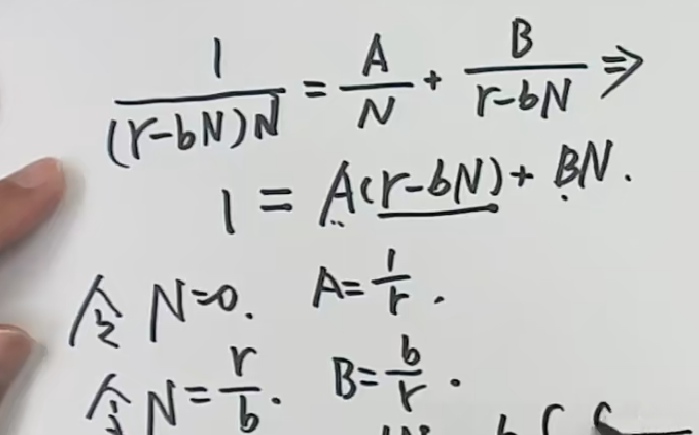 1/((r-bN)N) = A/N + B/(r-bN) ⇒
1 = A(r-bN) + BN.
令 N=0. A=1/r.
令 N=r/b. B=b/r.